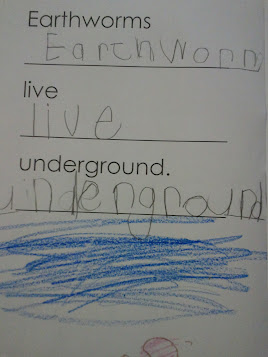 Earthworms
Earthworm
live
live
underground.
underground